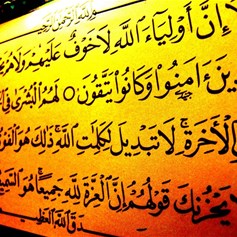 لَا إِنَّ أَوْلِيَاءَ اللَّهِ لَا خَوْفٌ عَلَيْهِمْ وَلَا هُمْ
ينَ ءَامَنُوا وَكَانُوا يَتَّقُونَ ○ لَهُمُ الْبُشْرَىٰ فِي
الْآخِرَةِ لَا تَبْدِيلَ لِكَلِمَاتِ اللَّهِ ذَٰلِكَ هُوَ الْفَوْ
لَا يَحْزُنْكَ قَوْلُهُمْ إِنَّ الْعِزَّةَ لِلَّهِ جَمِيعًا هُوَ السَّمِيعُ
صَدَقَ اللَّهُ الْعَظِيمُ